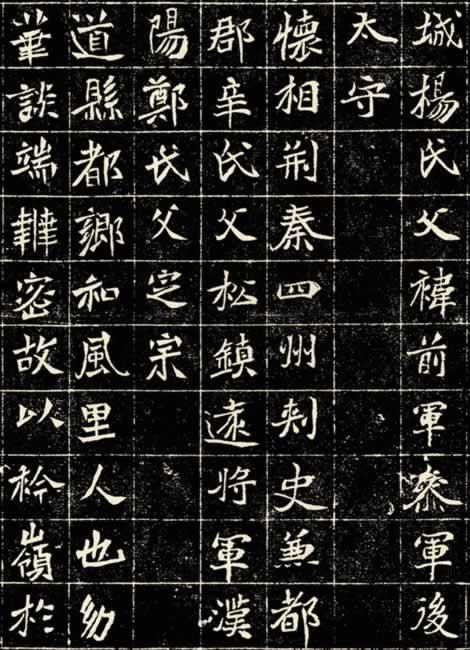 城楊氏父禕前軍叅軍後
太守
懷相荊秦四州刾史兼都
郡辛氏父松鎮遠將軍漢
陽鄭氏父定宗
道縣都鄉和風里人也幼
華談端韡密故以衿嶺於